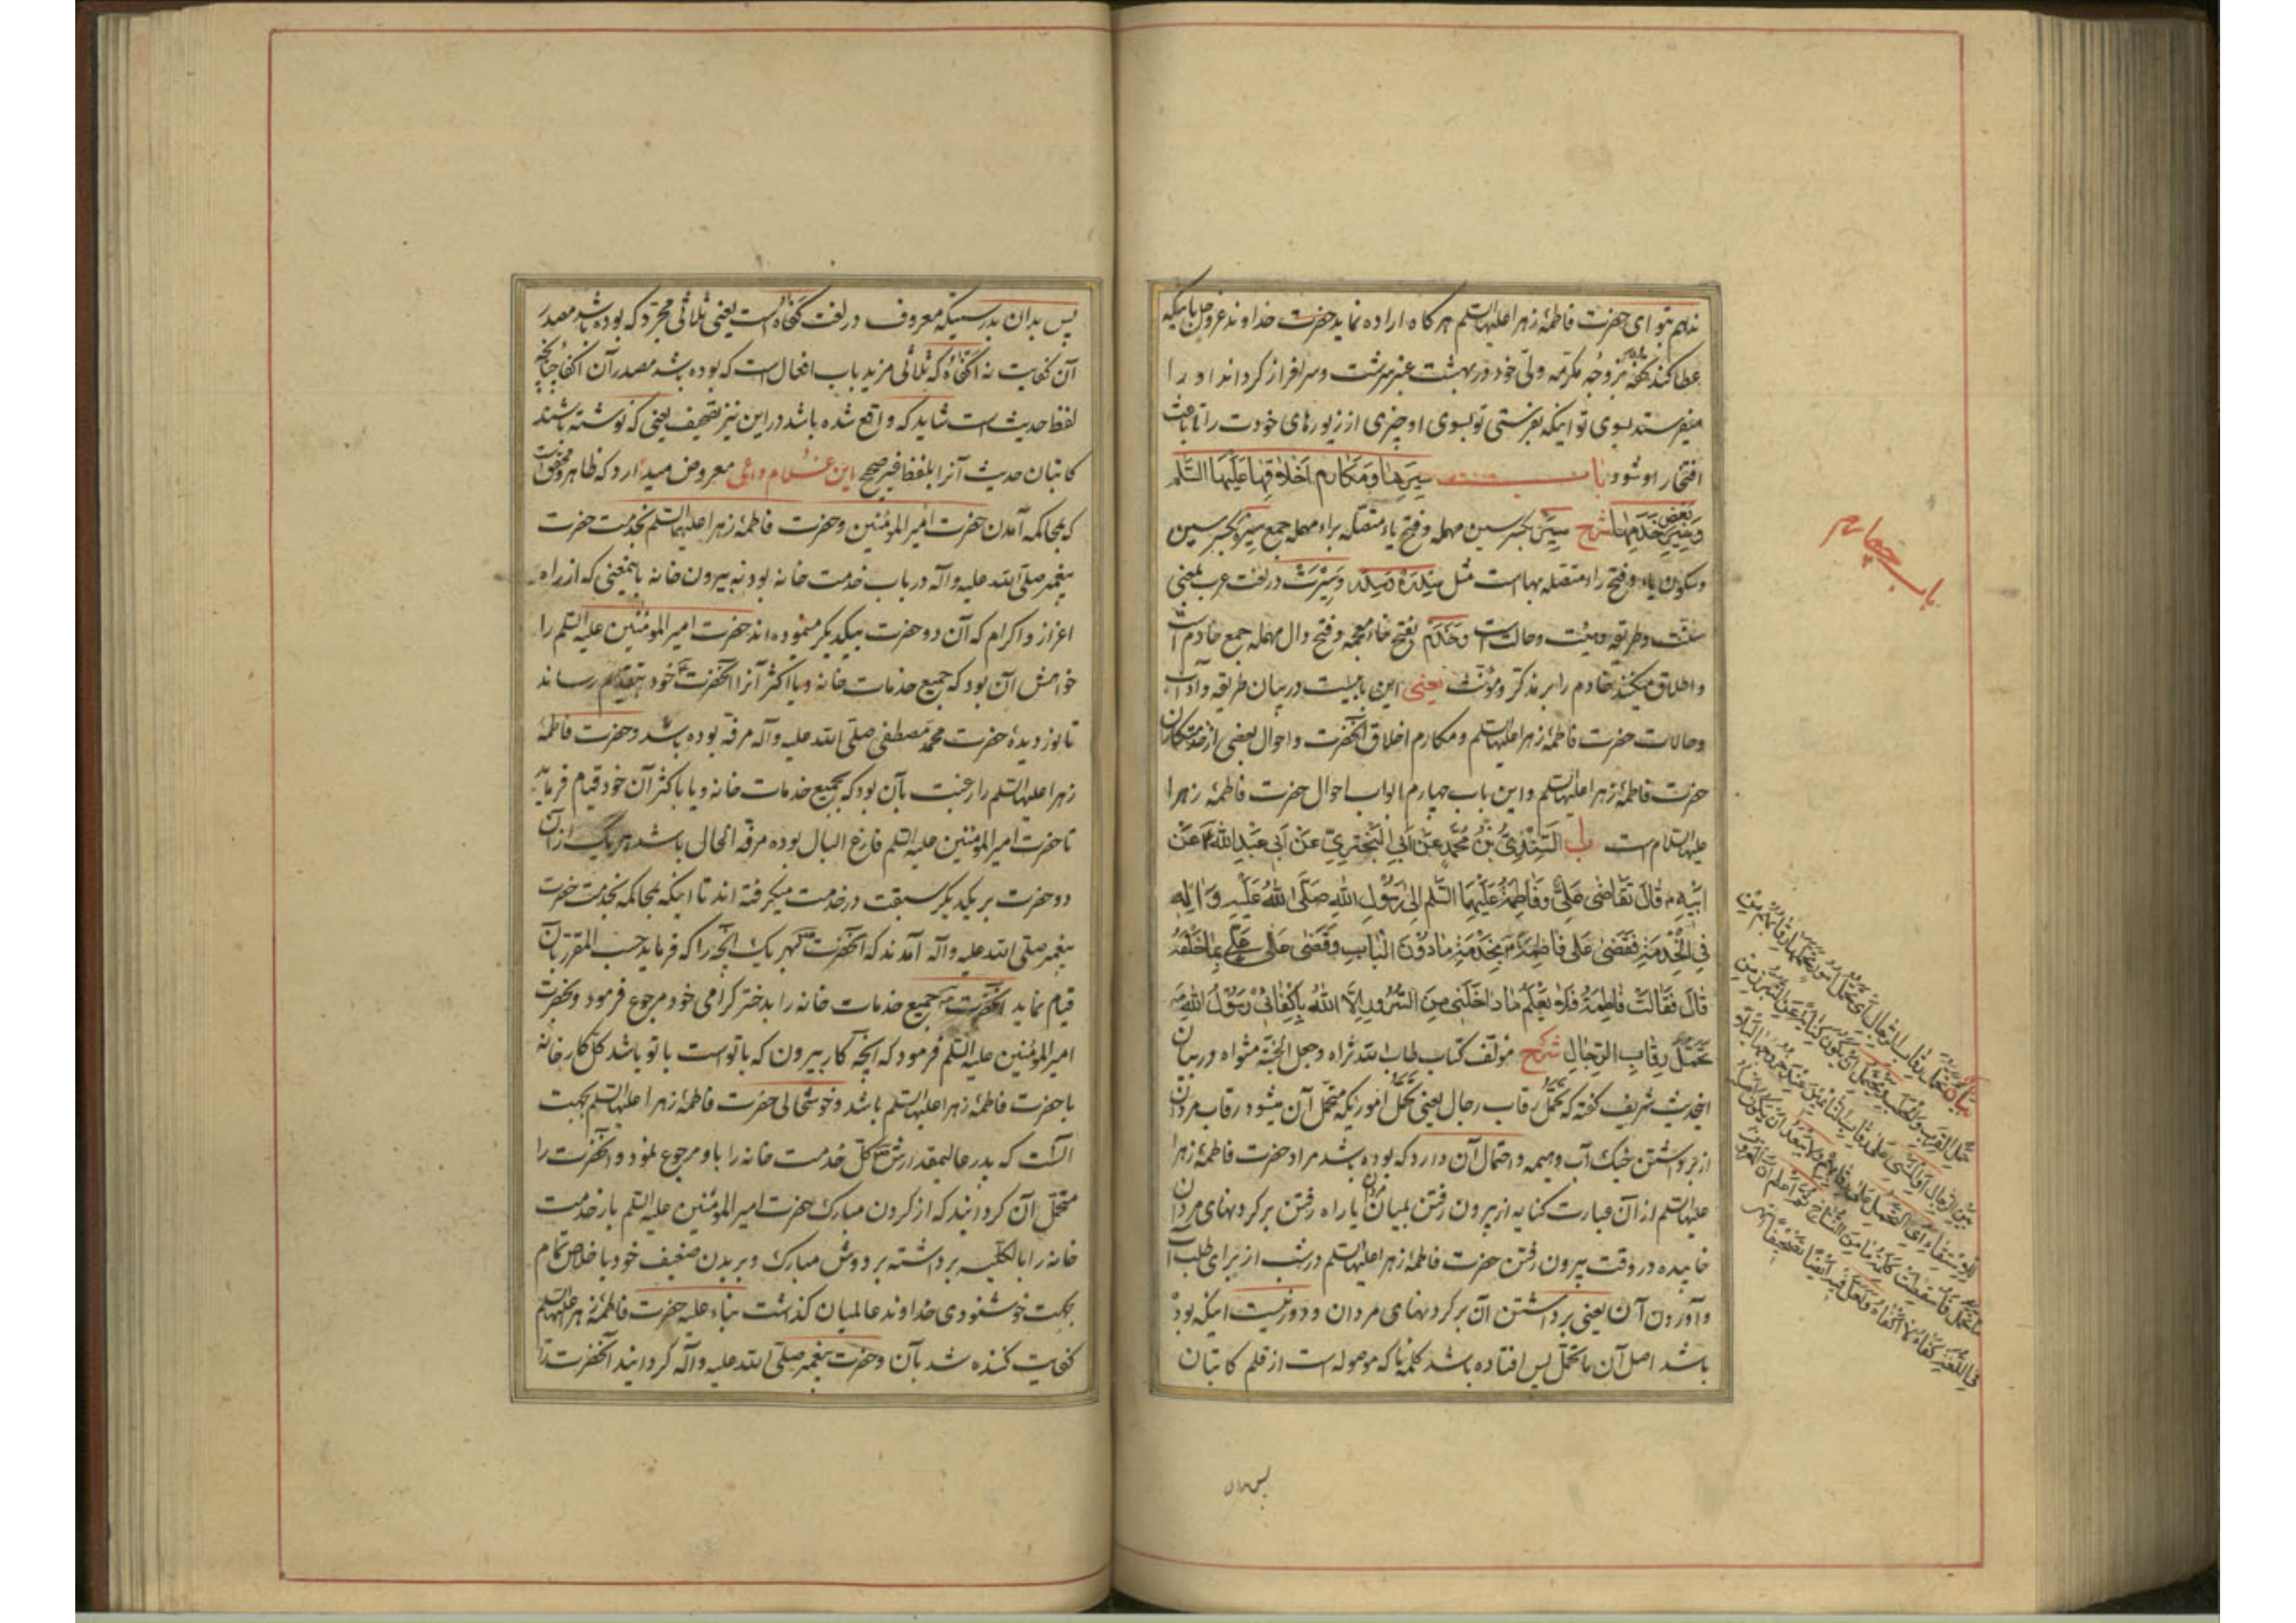 ندهم بتو ای حضرت فاطمهٔ زهرا علیها السلم هر کاه اراده نماید حضرت خداوند عزوجل باینکه
عطا کند تحفهٔ بزوجهٔ مکرّمه ولیّ خود در بهشت عنبر سرشت و سرافراز کرداند او را
میفرستد بسوی تو اینکه بفرستی تو بسوی او چیزی از زیورهای خودت را تا باعث
افتخار او شود باب سِیَرِها وَمَکارِمِ اَخلاقِها عَلَیهَا السَّلم
وَسِیَرِ بَعضِ خَدَمِها شرح سِیَر بکسر سین مهمله و فتح یاء متصله براء مهمله جمع سیرة بکسر سین
و سکون یاء و فتح راء متصله بهاست مثل و سیرت در لغت عرب بمعنی
سنّت و طریقه و هیئت و حالت است و خَدَم بفتح خاء معجمه و فتح دال مهمله جمع خادم است
و اطلاق میکنند خادم را بر مذکّر و مؤنّث یعنی این بابیست در بیان طریقه و آداب
و حالات حضرت فاطمهٔ زهرا علیها السلم و مکارم اخلاق آنحضرت و احوال بعضی از خدمتکاران
حضرت فاطمهٔ زهرا علیها السلم و این باب چهارم ابواب احوال حضرت فاطمهٔ زهرا
علیها السلام است ب السِّنْدِیُّ بْنُ مُحَمَّدٍ عَنْ اَبِی الْبَخْتَرِیِّ عَنْ اَبِی عَبْدِ اللهِ ع عَنْ
اَبِیهِ ع قالَ تَقاضی عَلِیٌّ وَفاطِمَةُ عَلَیْهِمَا السَّلم اِلی رَسُولِ اللهِ صَلَّی اللهُ عَلَیْهِ وَالِهِ
فِی الْخِدْمَةِ فَقَضی عَلی فاطِمَةَ ع بِخِدْمَةِ مادُونَ الْبابِ وَقَضی عَلی عَلِیٍّ ع بِما خَلْفَهُ
قالَ فَقالَتْ فاطِمَةُ فَلا یَعْلَمُ ما داخَلَنِی مِنَ السُّرُورِ اِلَّا اللهُ بِاِکْفائِی رَسُولُ اللهِ ص
تَحَمُّلَ رِقابِ الرِّجالِ شرح مؤلف کتاب طاب الله ثراه وجعل الجنّة مثواه در بیان
اینحدیث شریف کفته که تحمّل رقاب رجال یعنی تحمّل اموریکه متحمّل آن میشود رقاب مردان
از برداشتن خیک آب و هیمه و احتمال آن دارد که بوده باشد مراد حضرت فاطمهٔ زهرا
علیها السلم از آن عبارت کنایه از بیرون رفتن بمیان مردان یا راه رفتن بر کردنهای مردان
خابیده در وقت بیرون رفتن حضرت فاطمهٔ زهرا علیها السلم در شب از برای طلب آب
و آوردن آن یعنی برداشتن آن بر کردنهای مردان و دور نیست اینکه بوده
باشد اصل آن ما تحمّل پس افتاده باشد کلمهٔ ما که موصوله است از قلم کاتبان
پس بدان
باب چهارم
بیان تحمّل رقاب الرجال ای تحمّل امور تحملها رقابهم من
حمل القرب والحطب ویحتمل ان یکون کنایة عن التبرّز من
بین الرجال او المشی علی رقاب النائمین عند خروجها لیلاً
للاستقاء ای التحمل علی رقابهم ولا یبعد ان یکون اصله
ما تحمل فاسقطت کلمة ما من النساخ ثم اعلم ان المعروف
فی اللغة کفاه لا اکفاه ولعل فیه ایضاً تصحیفاً
پس بدان بدرستیکه معروف در لغت کفاه است یعنی ثلاثی مجرّد که بوده باشد مصدر
آن کفایت نه اکفاه که ثلاثی مزید باب افعال است که بوده باشد مصدر آن اکفا چنانچه
لفظ حدیث است شاید که واقع شده باشد در این نیز تصحیف یعنی که نوشته باشند
کاتبان حدیث آنرا بلفظ غیر صحیح این غلام داعی معروض میدارد که ظاهر و محقق است
که بمحاکمه آمدن حضرت امیر المؤمنین و حضرت فاطمهٔ زهرا علیهما السلم بخدمت حضرت
پیغمبر صلی الله علیه وآله در باب خدمت خانه بود نه بیرون خانه باینمعنی که از راه
اعزاز و اکرام که آن دو حضرت بیکدیکر مینموده اند حضرت امیر المؤمنین علیه السلم را
خواهش آن بود که جمیع خدمات خانه و یا اکثر آنرا آنحضرت خود بتقدیم رساند
تا نور دیدهٔ حضرت محمّد مصطفی صلی الله علیه وآله مرفّه بوده باشد و حضرت فاطمهٔ
زهرا علیها السلم را رغبت بآن بود که بجمیع خدمات خانه و یا باکثر آن خود قیام فرماید
تا حضرت امیر المؤمنین علیه السلم فارغ البال بوده مرفّه الحال باشد هر یک از آن
دو حضرت بر یکدیکر سبقت در خدمت میکرفته اند تا اینکه بمحاکمه بخدمت حضرت
پیغمبر صلی الله علیه وآله آمدند که آنحضرت ص بهر یک آنچه را که فرماید حسب المقرر بآن
قیام نماید آنحضرت ص جمیع خدمات خانه را بدختر کرامی خود مرجوع فرمود و بحضرت
امیر المؤمنین علیه السلم فرمود که آنچه کار بیرون که با تو است با تو باشد کلّ کار خانه
با حضرت فاطمهٔ زهرا علیها السلم باشد و خوشحالی حضرت فاطمهٔ زهرا علیها السلم بجهت
آنست که پدر عالیمقدارش ص کلّ خدمت خانه را باو مرجوع نمود و آنحضرت را
متحمّل آن کردانید که از کردن مبارک حضرت امیر المؤمنین علیه السلم بار خدمت
خانه را بالکلّیه برداشته بر دوش مبارک و بر بدن ضعیف خود با خلاص تمام
بجهت خوشنودی خداوند عالمیان کذاشت بناء علیه حضرت فاطمهٔ زهرا علیها السلم
کفایت کننده شد بآن و حضرت پیغمبر صلی الله علیه وآله کردانید آنحضرت را